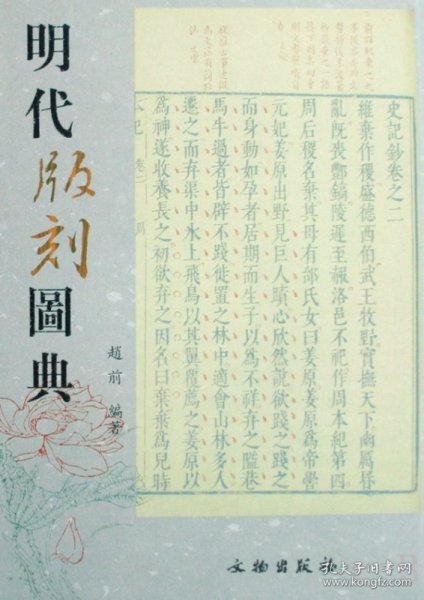 明代版刻圖典
趙前 編著
史記鈔卷之二
維棄作稷盛德西伯武王牧野實撫天下幽厲昏
亂既喪酆鎬陵遲至赧洛邑不祀作周本紀第四
周后稷名棄其母有邰氏女曰姜原姜原爲帝嚳
元妃姜原出野見巨人蹟心欣然說欲踐之踐之
而身動如孕者居期而生子以爲不祥弃之隘巷
馬牛過者皆辟不踐徙置之林中適會山林多人
遷之而弃渠中氷上飛鳥以其翼覆薦之姜原以
爲神遂收養長之初欲弃之因名曰棄棄爲兒時
卷二 周
文物出版社
孔夫子旧书网
www.kongfz.com